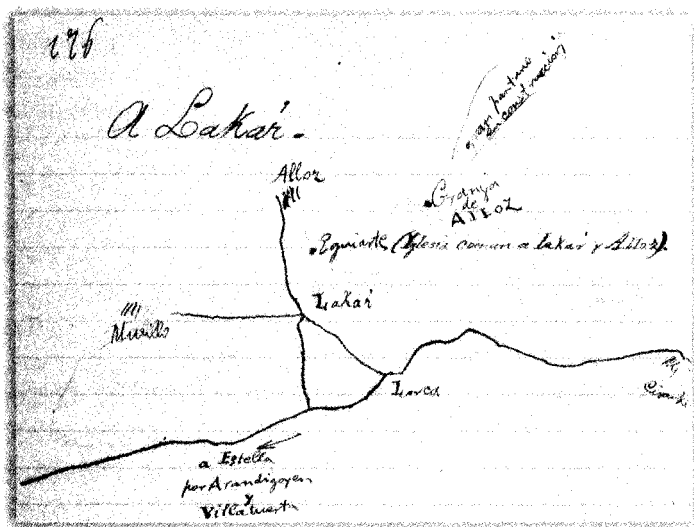 126
A Lakár.
gran pantano
en construcción
Alloz
Granja
de
ALLOZ
Eguiarte (Iglesia comun a Lakár y Alloz).
Lakár
Murillo
Lorca
a Estella
por Arandigoyen
y
Villatuerta